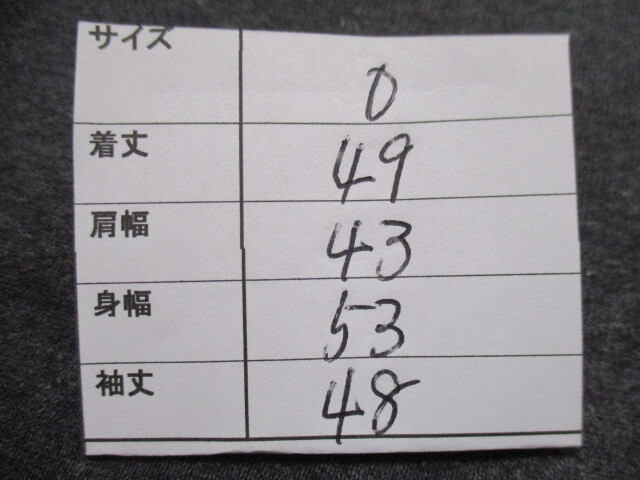 サイズ 0
着丈 49
肩幅 43
身幅 53
袖丈 48